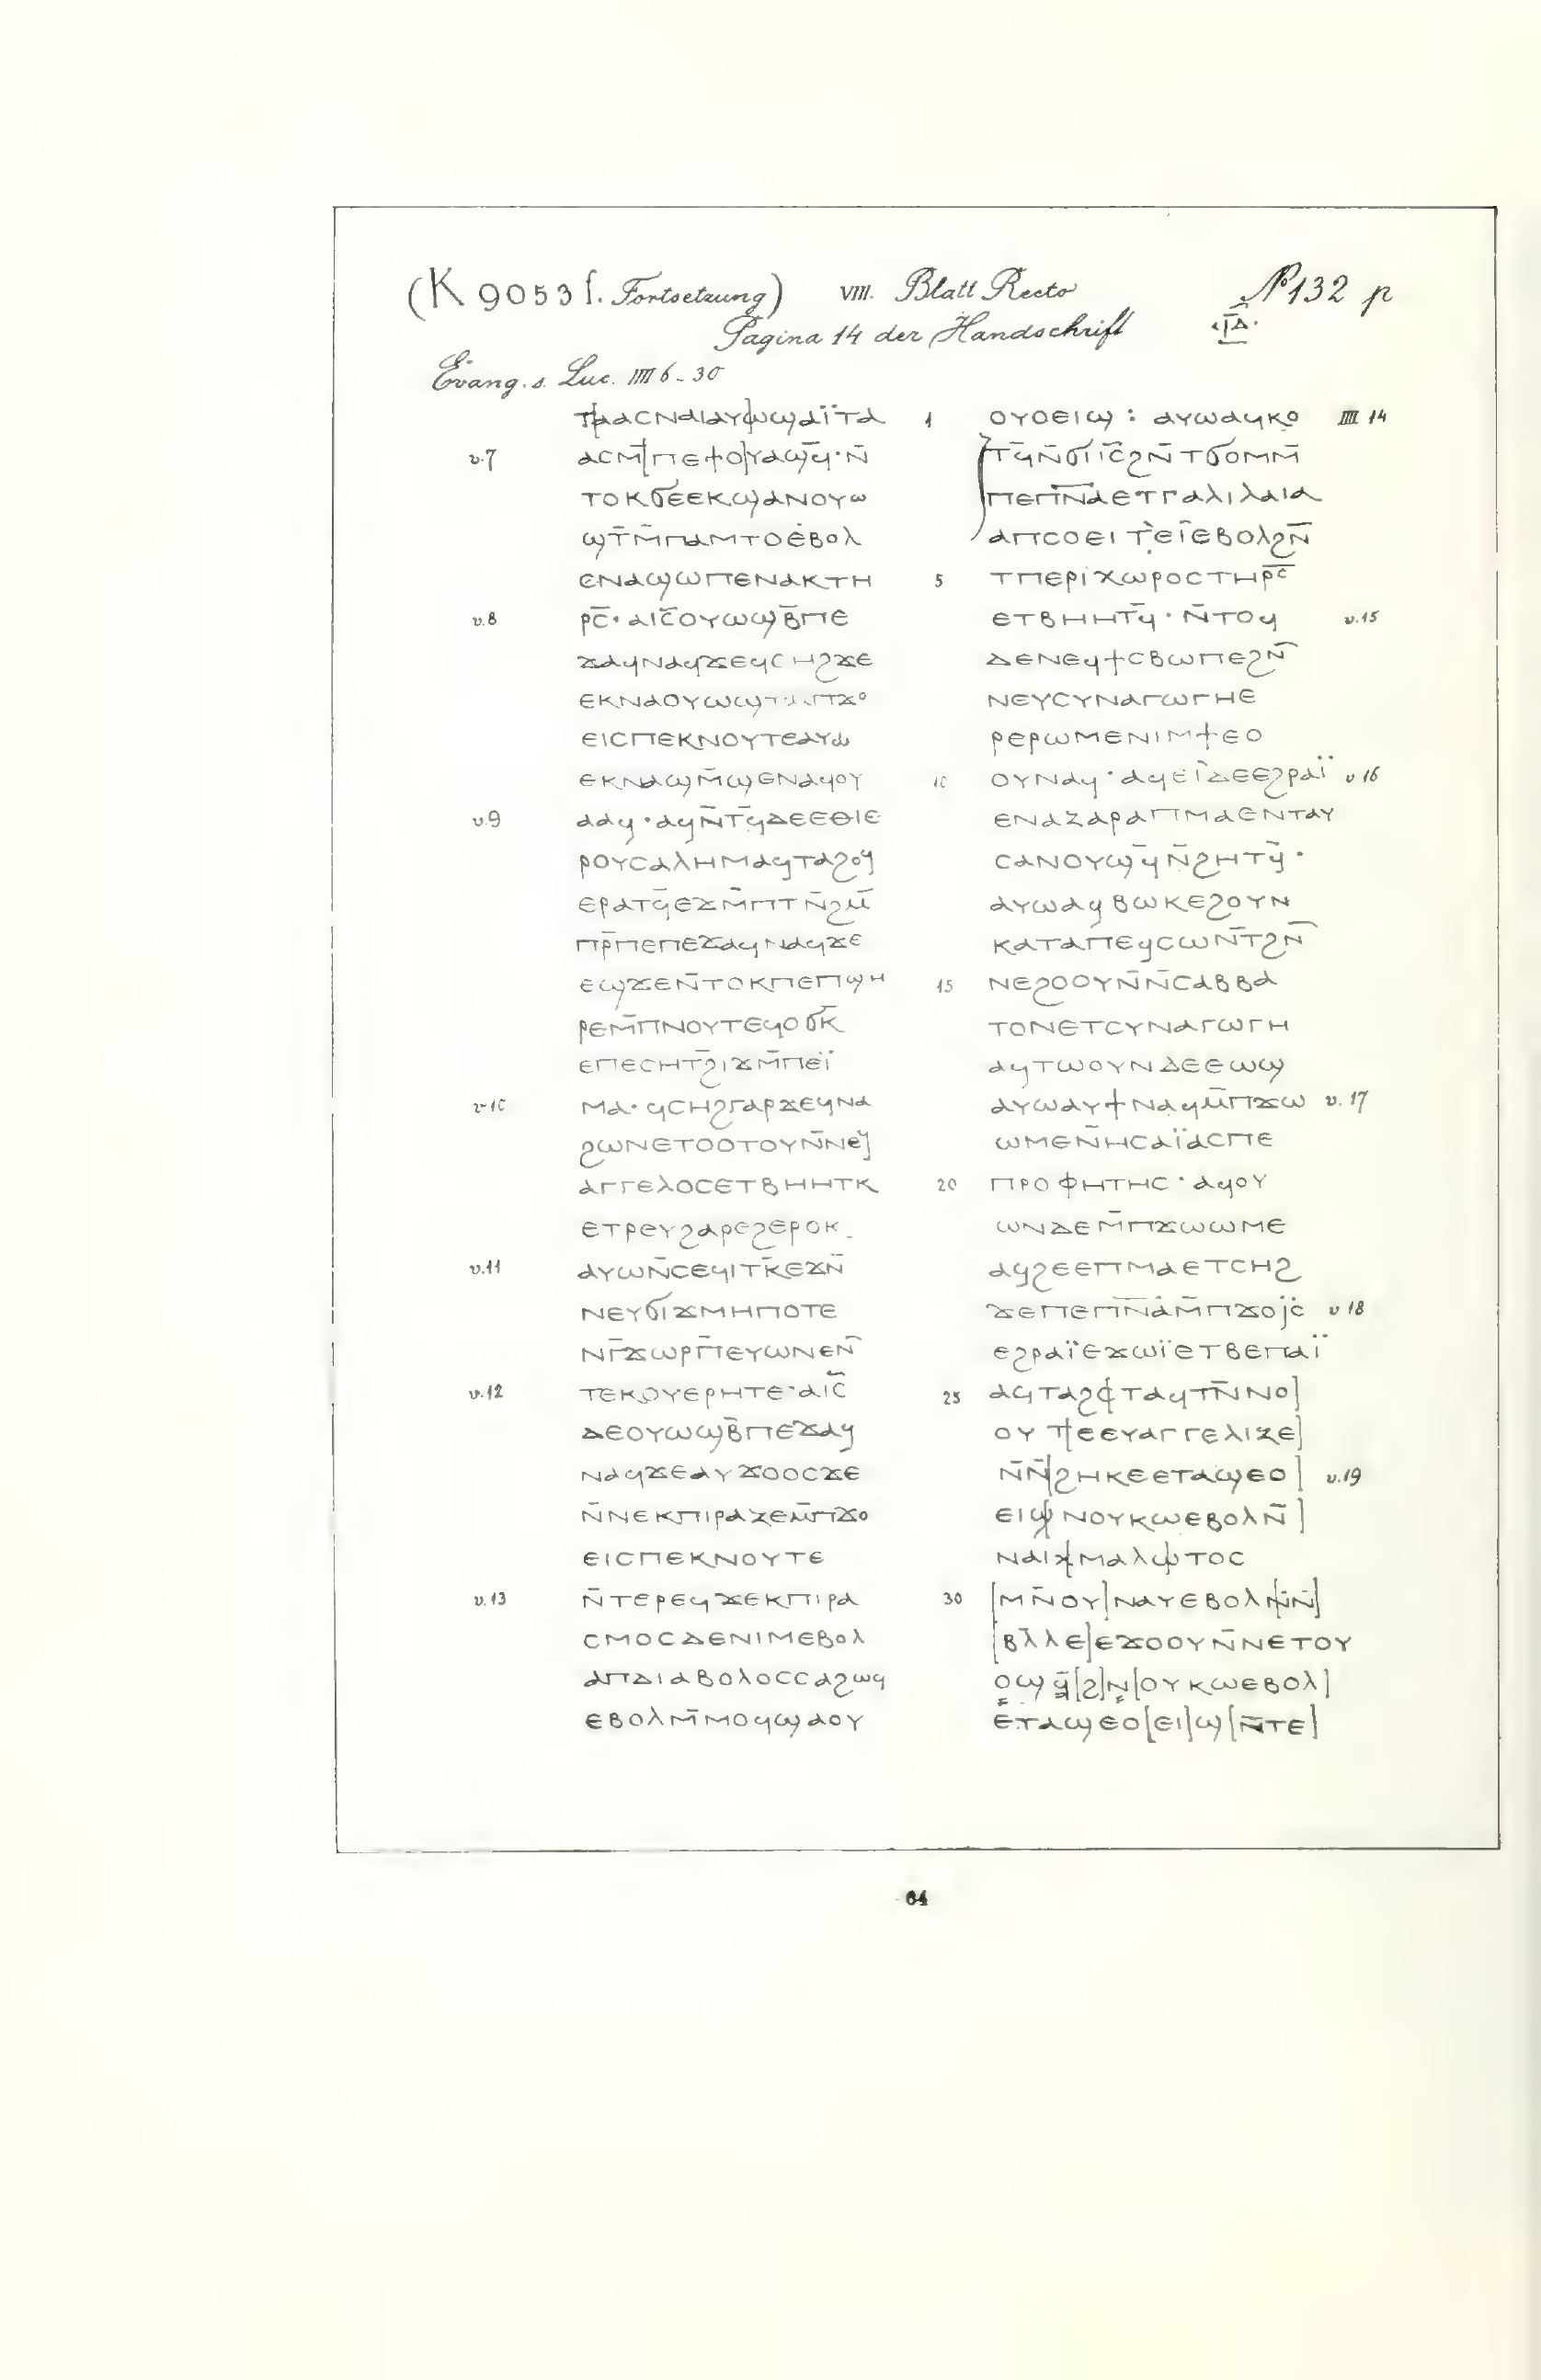 (K 9053 f. Fortsetzung) VIII. Blatt Recto № 132 p
Pagina 14 der Handschrift ·ⲓ̅ⲇ̅·
Evang. s. Luc. IIII 6-30
ⲧⲁⲁⲥⲛⲁⲓⲁⲩⲱϣⲁⲓ̈ⲧⲁ
v.7 ⲁⲥⲙ̅ⲡⲉϯⲟⲩⲁϣϥ̅·ⲛ̅
ⲧⲟⲕϭⲉⲉⲕϣⲁⲛⲟⲩⲱ
ϣⲧ̅ⲙ̅ⲡⲁⲙⲧⲟⲉⲃⲟⲗ
ⲥⲛⲁϣⲱⲡⲉⲛⲁⲕⲧⲏ
v.8 ⲣⲥ̅·ⲁⲓⲥ̅ⲟⲩⲱϣⲃ̅ⲡⲉ
ϫⲁϥⲛⲁϥϫⲉϥⲥⲏϩϫⲉ
ⲉⲕⲛⲁⲟⲩⲱϣⲧⲙⲡϫⲟ
ⲉⲓⲥⲡⲉⲕⲛⲟⲩⲧⲉⲁⲩⲱ
ⲉⲕⲛⲁϣⲙ̅ϣⲉⲛⲁϥⲟⲩ
v.9 ⲁⲁϥ·ⲁϥⲛ̅ⲧϥ̅ⲇⲉⲉⲑⲓⲉ
ⲣⲟⲩⲥⲁⲗⲏⲙⲁϥⲧⲁϩⲟϥ
ⲉⲣⲁⲧϥ̅ⲉϫⲙ̅ⲡⲧⲛ̅ϩⲙ̅
ⲡⲣ̅ⲡⲉⲡⲉϫⲁϥⲛⲁϥϫⲉ
ⲉϣϫⲉⲛ̅ⲧⲟⲕⲡⲉⲡϣⲏ
ⲣⲉⲙ̅ⲡⲛⲟⲩⲧⲉϥⲟϭⲕ̅
ⲉⲡⲉⲥⲏⲧ̅ϩⲓϫⲙ̅ⲡⲉⲓ̈
v.10 ⲙⲁ·ϥⲥⲏϩⲅⲁⲣϫⲉϥⲛⲁ
ϩⲱⲛⲉⲧⲟⲟⲧⲟⲩⲛ̅ⲛⲉϥ
ⲁⲅⲅⲉⲗⲟⲥⲉⲧⲃⲏⲏⲧⲕ
ⲉⲧⲣⲉⲩϩⲁⲣⲉϩⲉⲣⲟⲕ
v.11 ⲁⲩⲱⲛ̅ⲥⲉϥⲓⲧⲕ̅ⲉϫⲛ̅
ⲛⲉⲩϭⲓϫⲙⲏⲡⲟⲧⲉ
ⲛⲅ̅ϫⲱⲣⲡ̅ⲉⲩⲱⲛⲉⲛ̅
v.12 ⲧⲉⲕⲟⲩⲉⲣⲏⲧⲉ·ⲁⲓⲥ̅
ⲇⲉⲟⲩⲱϣⲃ̅ⲡⲉϫⲁϥ
ⲛⲁϥϫⲉⲁⲩϫⲟⲟⲥϫⲉ
ⲛ̅ⲛⲉⲕⲡⲓⲣⲁⲍⲉⲙ̅ⲡϫⲟ
ⲉⲓⲥⲡⲉⲕⲛⲟⲩⲧⲉ
v.13 ⲛ̅ⲧⲉⲣⲉϥϫⲉⲕⲡⲓⲣⲁ
ⲥⲙⲟⲥⲇⲉⲛⲓⲙⲉⲃⲟⲗ
ⲁⲡⲇⲓⲁⲃⲟⲗⲟⲥⲥⲁϩⲱϥ
ⲉⲃⲟⲗⲙ̅ⲙⲟϥϣⲁⲟⲩ
1 ⲟⲩⲟⲉⲓϣ : ⲁⲩⲱⲁϥⲕⲟ IIII 14
ⲧϥ̅ⲛ̅ϭⲓⲓⲥ̅ϩⲛ̅ⲧϭⲟⲙⲙ̅
ⲡⲉⲡⲛ̅ⲁⲉⲧⲅⲁⲗⲓⲗⲁⲓⲁ
ⲁⲡⲥⲟⲉⲓⲧⲉⲓ̈ⲉⲃⲟⲗϩⲛ̅
5 ⲧⲡⲉⲣⲓⲭⲱⲣⲟⲥⲧⲏⲣⲥ̅
ⲉⲧⲃⲏⲏⲧϥ̅·ⲛ̅ⲧⲟϥ v.15
ⲇⲉⲛⲉϥϯⲥⲃⲱⲡⲉϩⲛ̅
ⲛⲉⲩⲥⲩⲛⲁⲅⲱⲅⲏⲉ
ⲣⲉⲣⲱⲙⲉⲛⲓⲙϯⲉⲟ
10 ⲟⲩⲛⲁϥ·ⲁϥⲉⲓ̈ⲇⲉⲉϩⲣⲁⲓ̈ v 16
ⲉⲛⲁⲍⲁⲣⲁⲡⲙⲁⲉⲛⲧⲁⲩ
ⲥⲁⲛⲟⲩϣϥ̅ⲛ̅ϩⲏⲧϥ̅·
ⲁⲩⲱⲁϥⲃⲱⲕⲉϩⲟⲩⲛ
ⲕⲁⲧⲁⲡⲉϥⲥⲱⲛ̅ⲧϩⲛ̅
15 ⲛⲉϩⲟⲟⲩⲛ̅ⲛ̅ⲥⲁⲃⲃⲁ
ⲧⲟⲛⲉⲧⲥⲩⲛⲁⲅⲱⲅⲏ
ⲁϥⲧⲱⲟⲩⲛⲇⲉⲉⲱϣ
ⲁⲩⲱⲁⲩϯⲛⲁϥⲙ̅ⲡϫⲱ v.17
ⲱⲙⲉⲛ̅ⲏⲥⲁⲓ̈ⲁⲥⲡⲉ
20 ⲡⲣⲟⲫⲏⲧⲏⲥ·ⲁϥⲟⲩ
ⲱⲛⲇⲉⲙ̅ⲡϫⲱⲱⲙⲉ
ⲁϥϩⲉⲉⲡⲙⲁⲉⲧⲥⲏϩ
ϫⲉⲡⲉⲡⲛ̅ⲁⲙ̅ⲡϫⲟⲓⲥ v 18
ⲉϩⲣⲁⲓ̈ⲉϫⲱⲓ̈ⲉⲧⲃⲉⲡⲁⲓ̈
25 ⲁϥⲧⲁϩⲥⲧⲁϥⲧⲛ̅ⲛⲟ]
ⲟⲩⲧ[ⲉⲉⲩⲁⲅⲅⲉⲗⲓⲍⲉ]
ⲛ̅ⲛ̅[ϩⲏⲕⲉⲉⲧⲁϣⲉⲟ] v.19
ⲉⲓϣ[ⲛⲟⲩⲕⲱⲉⲃⲟⲗⲛ̅]
ⲛⲁⲓⲭⲙⲁⲗⲱⲧⲟⲥ
30 [ⲙⲛ̅ⲟⲩ]ⲛⲁⲩⲉⲃⲟⲗ[ⲛ̅ⲛ̅]
[ⲃⲗ̅ⲗⲉ]ⲉϫⲟⲟⲩⲛ̅ⲛⲉⲧⲟⲩ
ⲟϣϥ̅[ϩ]ⲛ[ⲟⲩⲕⲱⲉⲃⲟⲗ]
ⲉⲧⲁϣⲉⲟ[ⲉⲓ]ϣ[ⲛ̅ⲧⲉ]
64